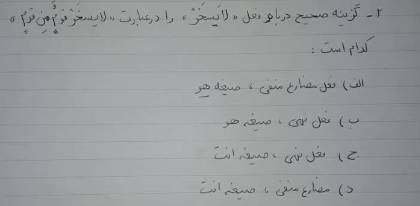 ۲_ گزینه صحیح درباره فعل «لایَسخَرْ» را در عبارت «لایسخَرْ قومٌ مِن قومٍ»
کدام است :
الف) فعل مضارع منفی ، صیغه هو
ب) فعل نهی ، صیغه هو
ج) فعل نهی ، صیغه انت
د) مضارع منفی ، صیغه انت